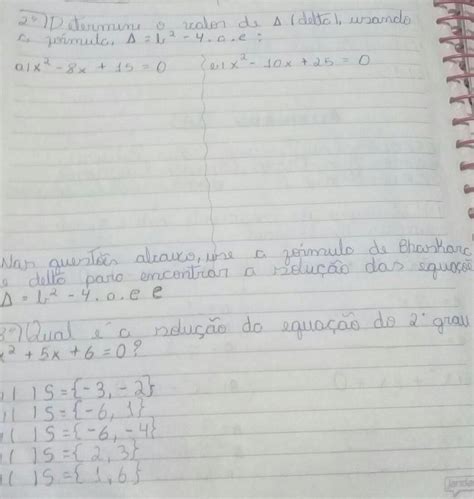 2º) Determine o valor de Δ (delta), usando
a fórmula, Δ = b² - 4.a.c:
a) x² - 8x + 15 = 0 a) x² - 10x + 25 = 0
Nas questões abaixo, use a fórmula de Bhaskara
e delta para encontrar a solução das equaçõ
Δ = b² - 4.a.c e
3º) Qual é a solução da equação do 2º grau
x² + 5x + 6 = 0?
( ) S = {-3, -2}
( ) S = {-6, 1}
( ) S = {-6, -4}
( ) S = {2, 3}
( ) S = {1, 6}